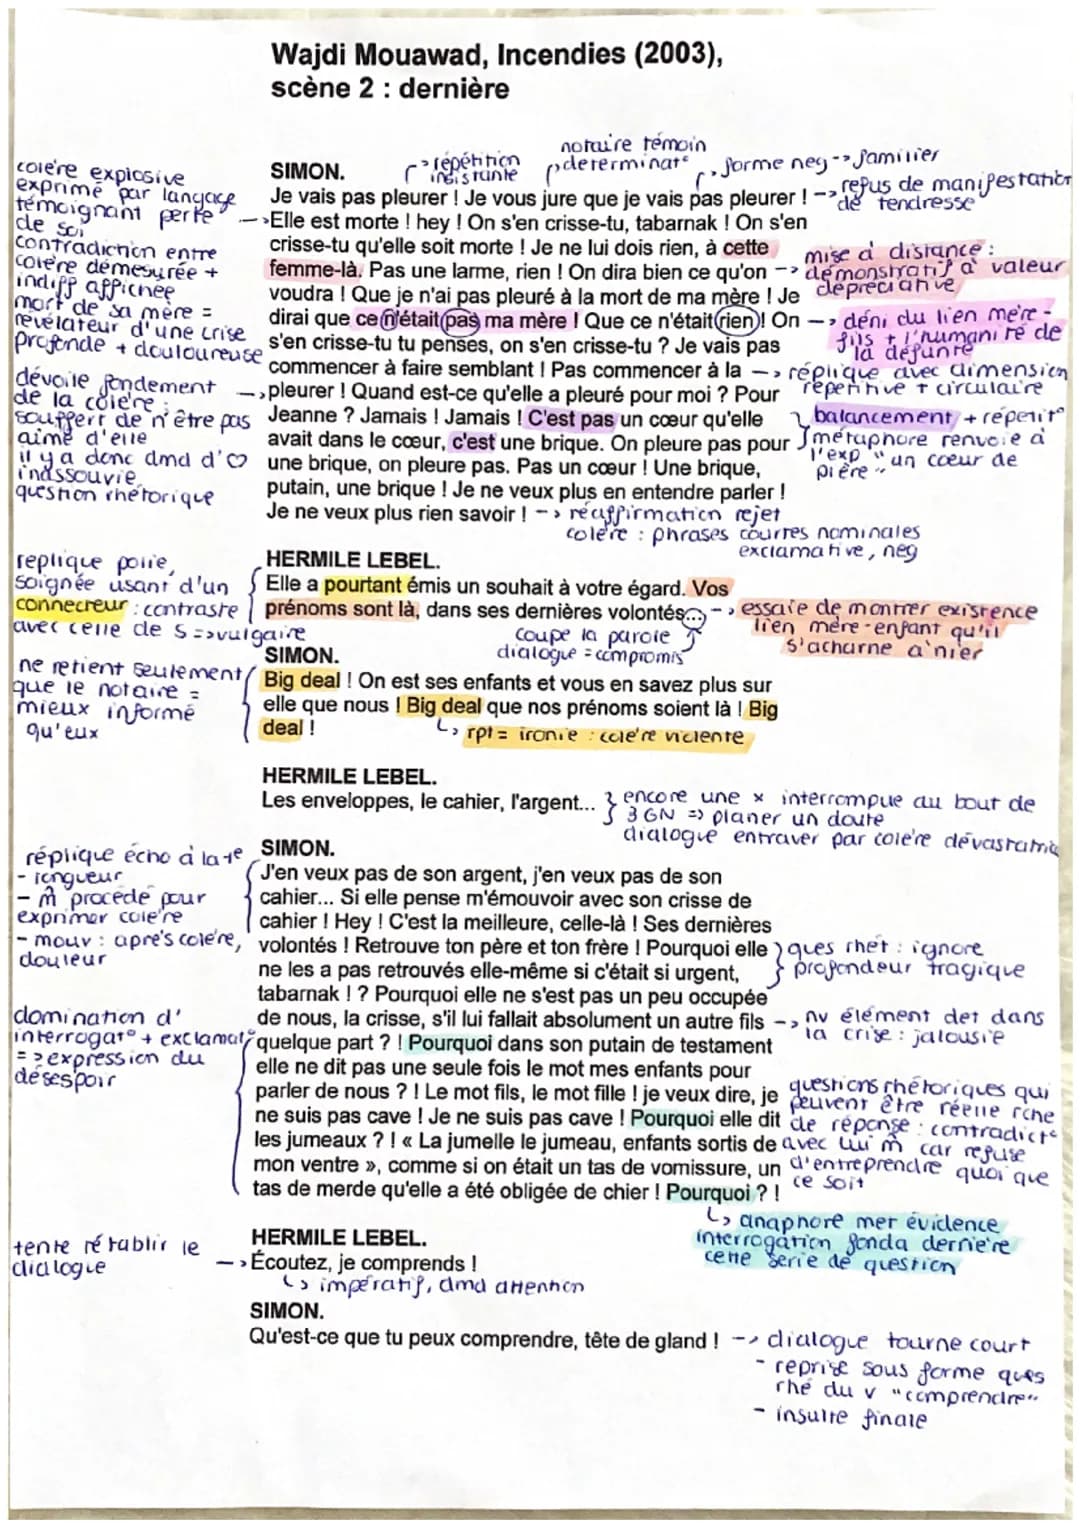 Wajdi Mouawad, Incendies (2003),
scène 2 : dernière
notaire témoin
-> répétition insistante
determinat°
forme neg -> familier
-> refus de manifestation de tendresse
colère explosive
exprimé par langage
témoignant perte
de soi
contradiction entre
colère démesurée +
indiff affichée
mort de sa mère =
révélateur d'une crise
profonde + douloureuse
SIMON.
Je vais pas pleurer ! Je vous jure que je vais pas pleurer !
Elle est morte ! hey ! On s'en crisse-tu, tabarnak ! On s'en
crisse-tu qu'elle soit morte ! Je ne lui dois rien, à cette
femme-là. Pas une larme, rien ! On dira bien ce qu'on
voudra ! Que je n'ai pas pleuré à la mort de ma mère ! Je
dirai que ce n'était pas ma mère ! Que ce n'était rien ! On
s'en crisse-tu tu penses, on s'en crisse-tu ? Je vais pas
commencer à faire semblant ! Pas commencer à la
pleurer ! Quand est-ce qu'elle a pleuré pour moi ? Pour
Jeanne ? Jamais ! Jamais ! C'est pas un cœur qu'elle
avait dans le cœur, c'est une brique. On pleure pas pour
une brique, on pleure pas. Pas un cœur ! Une brique,
putain, une brique ! Je ne veux plus en entendre parler !
Je ne veux plus rien savoir !
mise à distance :
-> démonstratif à valeur
dépréciative
-> déni du lien mère-
fils + l'humanité de
la défunte
-> réplique avec dimension
répétitive + circulaire
balancement + répétit°
métaphore renvoie à
l'exp "un cœur de
pierre"
-> réaffirmation rejet
colère : phrases courtes nominales
exclamative, neg
dévoile fondement
de la colère :
souffert de n'être pas
aimé d'elle
il y a donc dmd d'♡
inassouvie
question rhétorique
HERMILE LEBEL.
Elle a pourtant émis un souhait à votre égard. Vos
prénoms sont là, dans ses dernières volontés...
réplique polie,
soignée usant d'un
connecteur : contraste
avec celle de S => vulgaire
-> essaie de montrer existence
lien mère-enfant qu'il
s'acharne à nier
coupe la parole
dialogue = compromis
SIMON.
Big deal ! On est ses enfants et vous en savez plus sur
elle que nous ! Big deal que nos prénoms soient là ! Big
deal !
ne retient seulement
que le notaire =
mieux informé
qu'eux
rpt = ironie : colère violente
HERMILE LEBEL.
Les enveloppes, le cahier, l'argent...
encore une x interrompue au bout de
3 GN => planer un doute
dialogue entraver par colère dévastatrice
SIMON.
J'en veux pas de son argent, j'en veux pas de son
cahier... Si elle pense m'émouvoir avec son crisse de
cahier ! Hey ! C'est la meilleure, celle-là ! Ses dernières
volontés ! Retrouve ton père et ton frère ! Pourquoi elle
ne les a pas retrouvés elle-même si c'était si urgent,
tabarnak ! ? Pourquoi elle ne s'est pas un peu occupée
de nous, la crisse, s'il lui fallait absolument un autre fils
quelque part ? ! Pourquoi dans son putain de testament
elle ne dit pas une seule fois le mot mes enfants pour
parler de nous ? ! Le mot fils, le mot fille ! je veux dire, je
ne suis pas cave ! Je ne suis pas cave ! Pourquoi elle dit
les jumeaux ? ! « La jumelle le jumeau, enfants sortis de
mon ventre », comme si on était un tas de vomissure, un
tas de merde qu'elle a été obligée de chier ! Pourquoi ? !
réplique écho à la 1e
- longueur
- m̂ procédé pour
exprimer colère
- mouv : après colère,
douleur
ques rhet : ignore
profondeur tragique
domination d'
interrogat° + exclamat°
=> expression du
désespoir
-> nv élément det dans
la crise : jalousie
questions rhétoriques qui
peuvent être réelle rche
de réponse : contradict°
avec lui m̂ car refuse
d'entreprendre quoi que
ce soit
anaphore met évidence
interrogation fonda dernière
cette série de question
HERMILE LEBEL.
Écoutez, je comprends !
tente rétablir le
dialogue
impératif, dmd attention
SIMON.
Qu'est-ce que tu peux comprendre, tête de gland !
-> dialogue tourne court
- reprise sous forme ques
rhé du v "comprendre"
- insulte finale